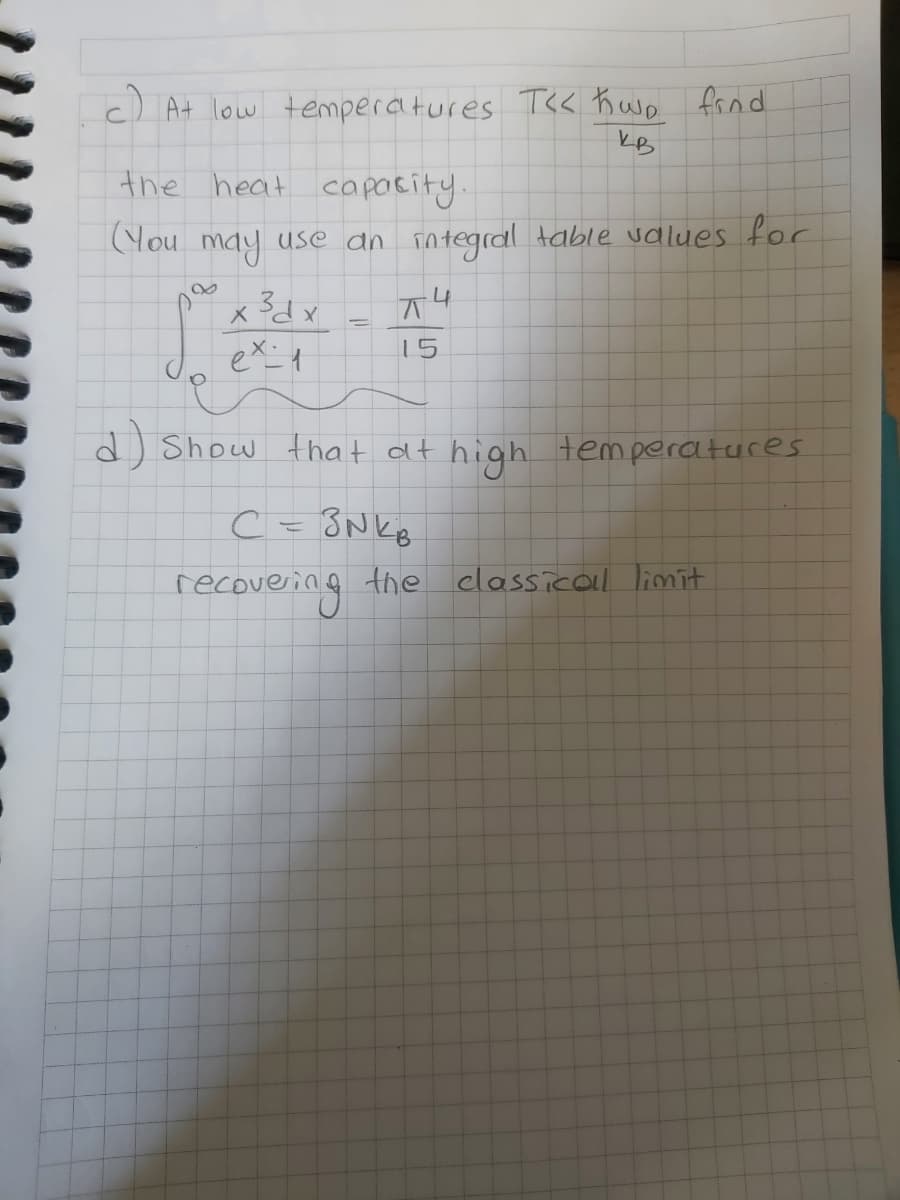 c) At low temperatures T<< ħωD/kB find
the heat capacity.
(You may use an integral table values for
∫₀^∞ x³dx/(eˣ-1) = π⁴/15
d) Show that at high temperatures
C = 3NkB
recovering the classical limit